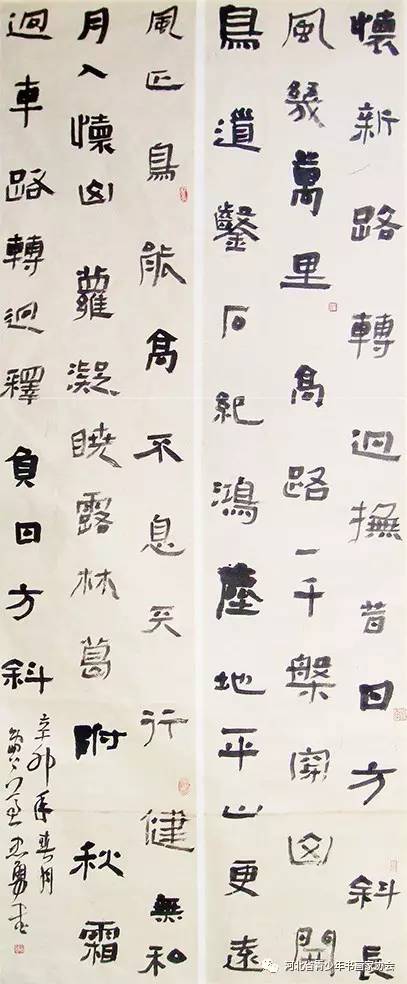 懷新路轉迥撫昔日方斜長
風幾萬里高路一千槃窮幽開
鳥道鑿石紀鴻塵地平山更遠
風正鳥能高不息天行健無和
月入懷幽蘿凝曉露林葛附秋霜
迥車路轉迥釋負日方斜
辛卯年春月
河北省青少年书画家协会